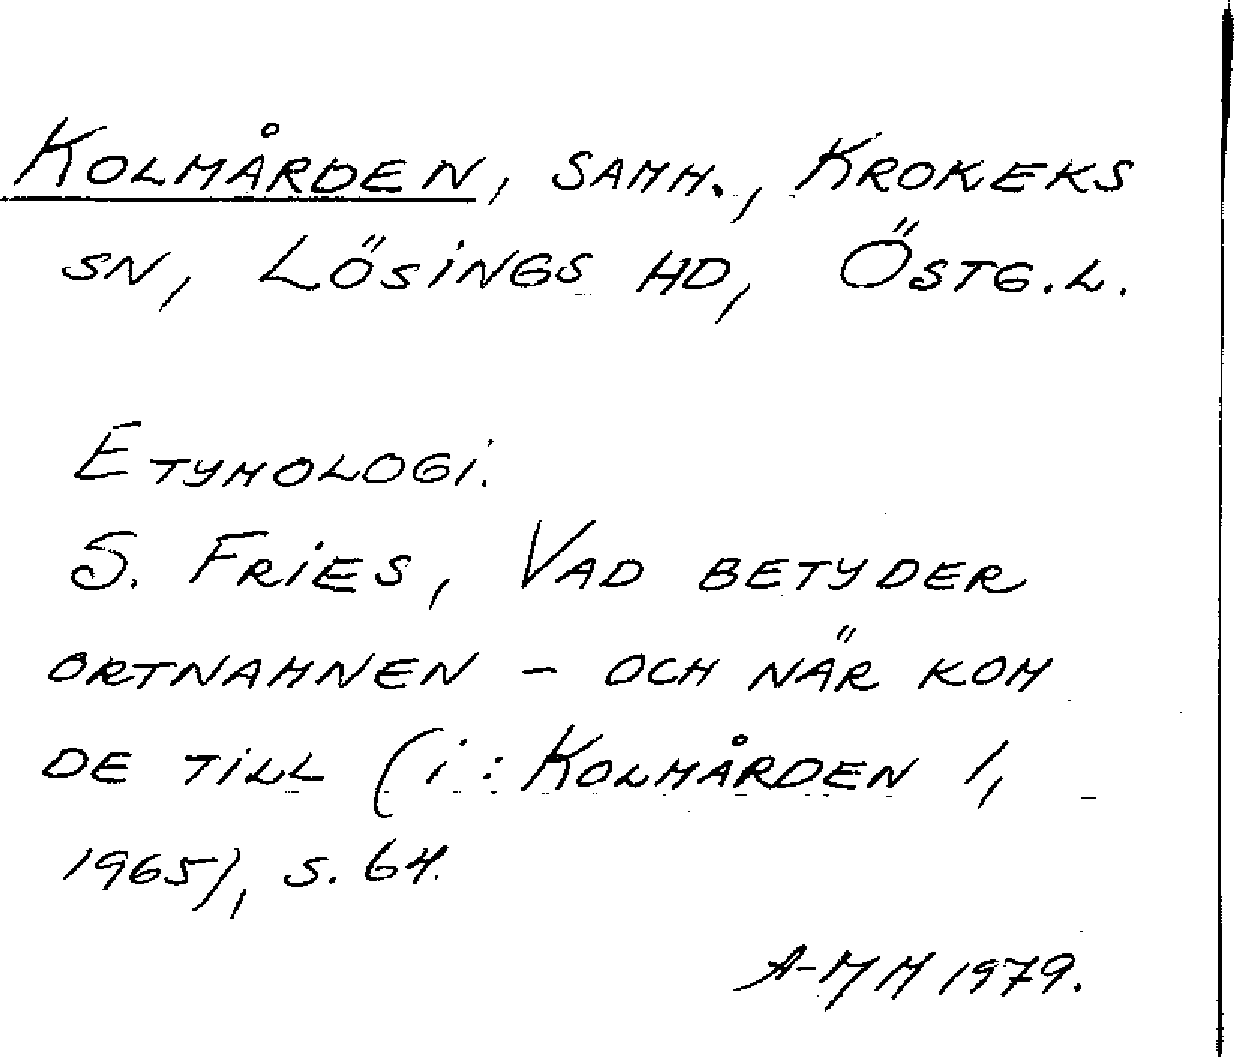 KOLMÅRDEN, SAMH., KROKEKS
SN, LÖSINGS HD, ÖSTG.L.
ETYMOLOGI.
S. FRIES, VAD BETYDER
ORTNAMNEN - OCH NÄR KOM
DE TILL (i: KOLMÅRDEN 1,
1965), S. 64.
A-MM 1979.